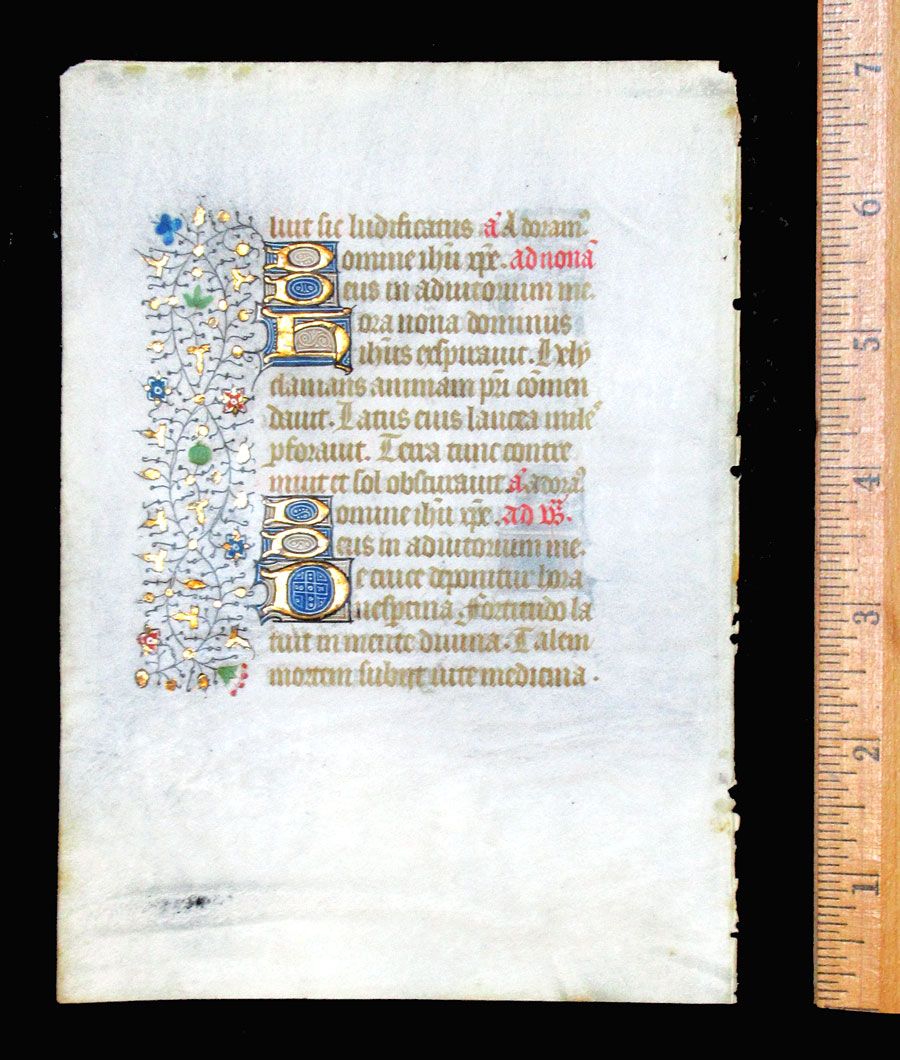 luit sic ludificatus a̅ Adoram⁹
Domine ihū xp̄e. ad nonā
Deus in adiutorium me.
Hora nona dominus
ihūs expirauit. Hely
clamans animam pr̄i cōmen
dauit. Latus eius lancea mile⁹
pforauit. Terra tunc contre
muit et sol obscurauit a̅ adora⁹
Domine ihū xp̄e. ad vs̄.
Deus in adiutorium me.
De cruce deponitur hora
uespertina fortitudo la
tuit in mente diuina. Talem
mortem subiijt uite medicina.
7
6
5
4
3
2
1